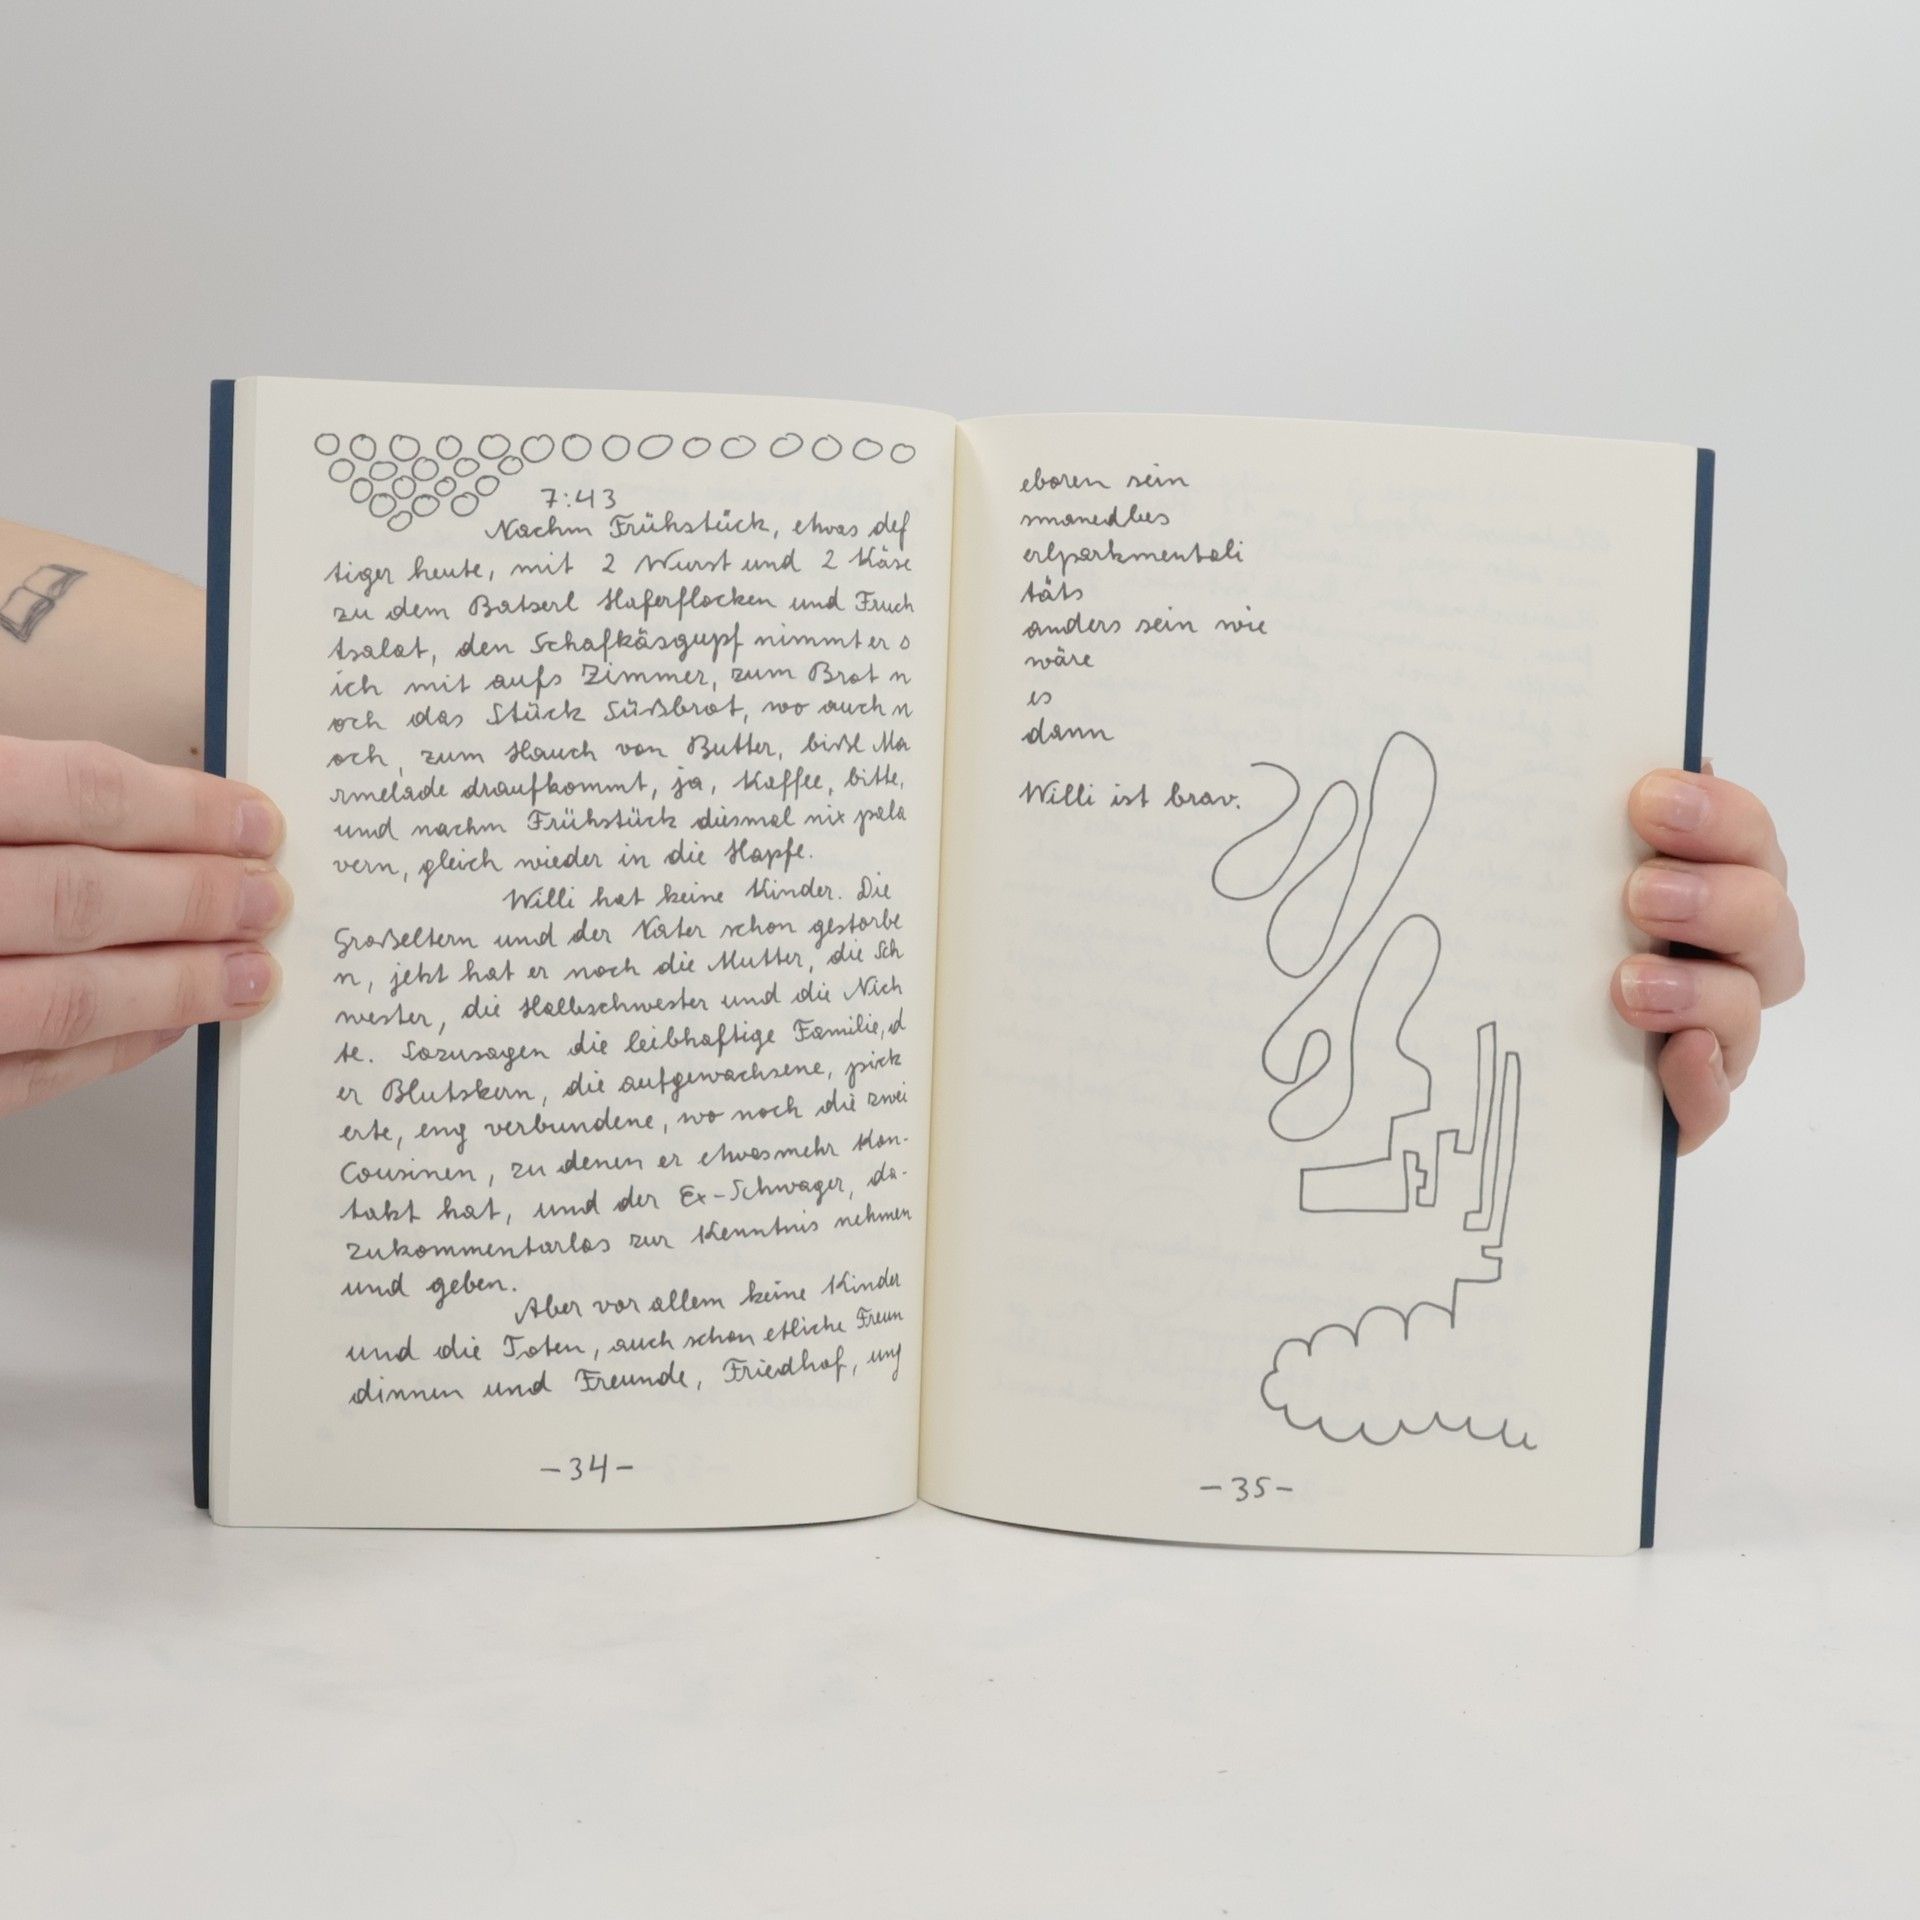 7:43
Nachm Frühstück, etwas def
tiger heute, mit 2 Wurst und 2 Käse
zu dem Batserl Haferflocken und Fruch
tsalat, den Schafkäsgupf nimmt er s
ich mit aufs Zimmer, zum Brot n
och das Stück Süßbrot, wo auch n
och, zum Hauch von Butter, bißl Ma
rmelade draufkommt, ja, Kaffee, bitte,
und nachm Frühstück diesmal nix pala
vern, gleich wieder in die Hapfe.
Willi hat keine Kinder. Die
Großeltern und der Vater schon gestorbe
n, jetzt hat er noch die Mutter, die Sch
wester, die Halbschwester und die Nich
te. Sozusagen die leibhaftige Familie, d
er Blutskern, die aufgewachsene, pick
erte, eng verbundene, wo noch die zwei
Cousinen, zu denen er etwas mehr Kon-
takt hat, und der Ex-Schwager, da-
zukommentarlos zur Kenntnis nehmen
und geben.
Aber vor allem keine Kinder
und die Toten, auch schon etliche Freun
dinnen und Freunde, Friedhof, ung
-34-
eboren sein
smanedbes
erlparkmentali
täts
anders sein wie
wäre
es
dann
Willi ist brav.
-35-